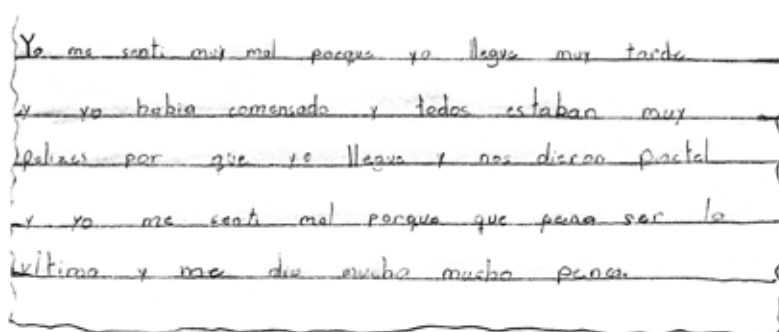 Yo me senti muy mal porque yo llegue muy tarde
y yo habia comensado y todos estaban muy
felizes por que yo llegue y nos dieron pastel
y yo me senti mal porque que pena ser la
vltima y me dio mucha mucha pena.